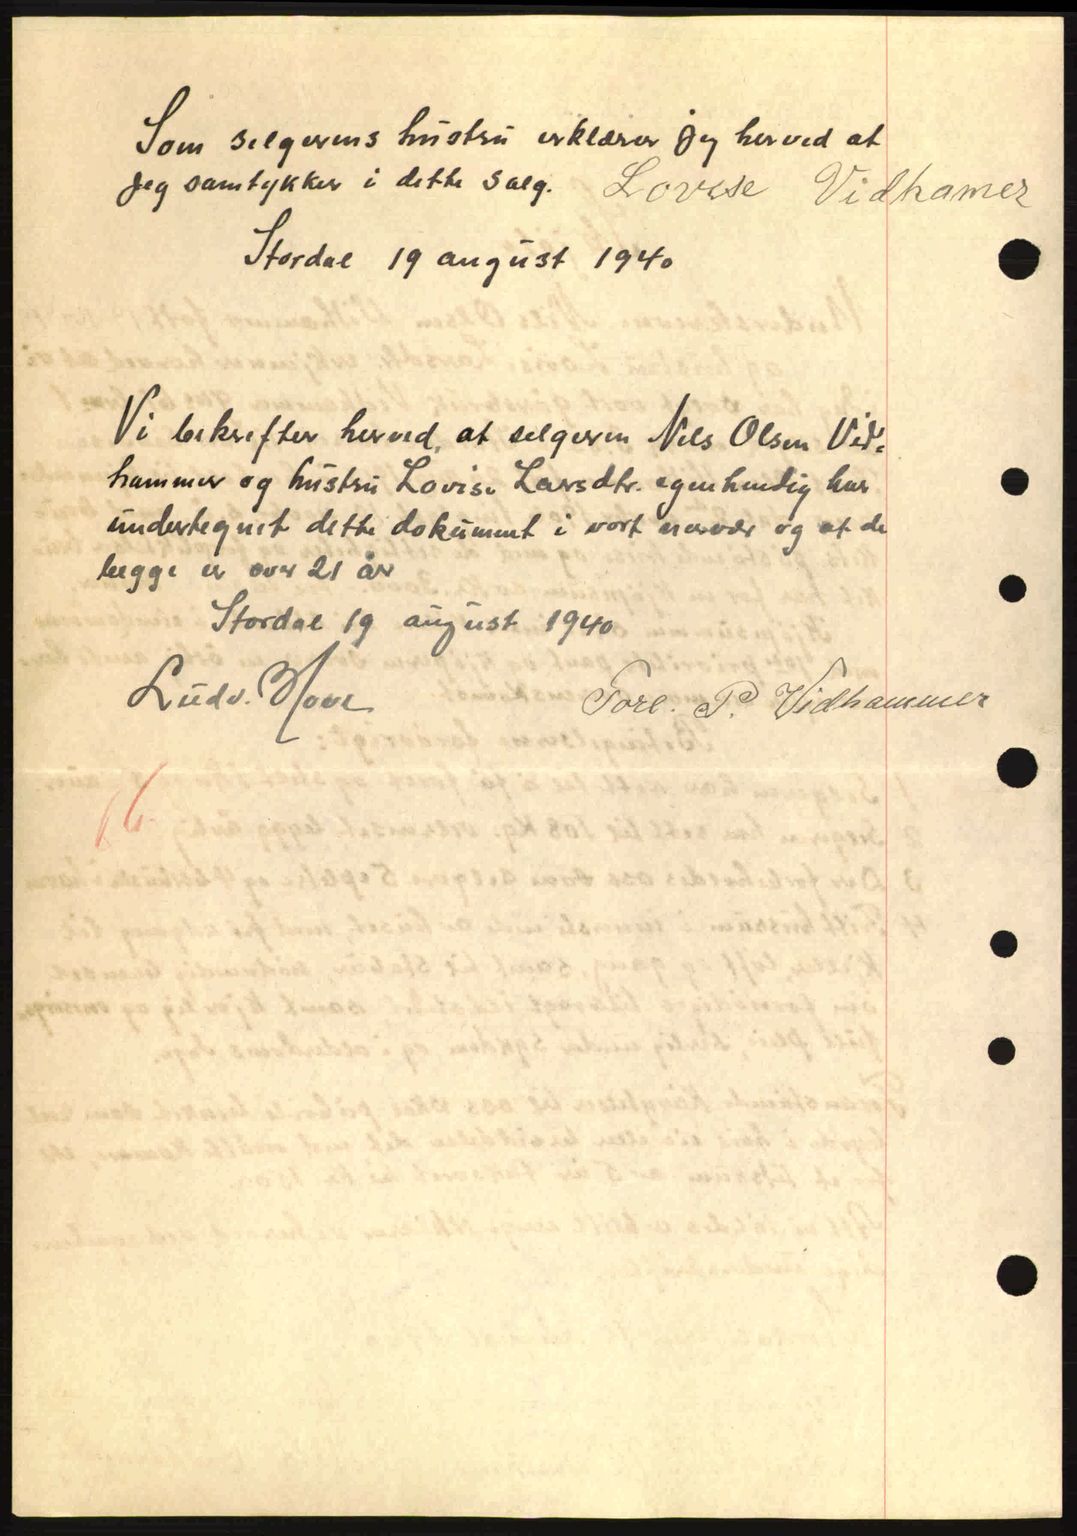 Som selgerens hustru erklærer jeg herved at
jeg samtykker i dette salg. Lovise Vidhamer
Stordal 19 august 1940
Vi bekrefter herved, at selgeren Nils Olsen Vid-
hammer og hustru Lovise Larsdtr. egenhendig har
undertegnet dette dokument i vort nærvær og at de
begge er over 21 år
Stordal 19 august 1940
Ludv. Hove Tore. P. Vidhammer